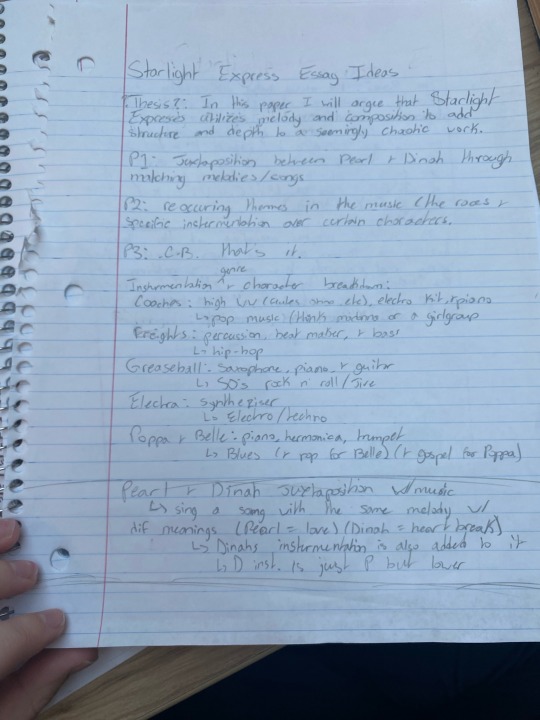 Starlight Express Essay Ideas
Thesis?: In this paper I will argue that Starlight
Express utilizes melody and composition to add
structure and depth to a seemingly chaotic work.
P1: Juxtaposition between Pearl + Dinah through
matching melodies/songs
P2: reoccuring themes in the music (the races +
specific instermentation over curtain characters.
P3: .C.B. that's it.
genre
Instermentation + character breakdown:
Coaches: high WW (flutes etc), electro kit, piano
↳ pop music / or a girlgroup
Freights: percussion, beat maker, + bass
↳ hip-hop
Greaseball: Saxophone, piano, + guitar
↳ 50's rock n' roll / Jive
Electra: synthesiser
↳ Electro/techno
Poppa + Belle: piano, hermonica, trumpet
↳ Blues (+ pop for Belle) (+ gospel for Poppa)
Pearl + Dinah Juxtaposition w/ music
↳ sing a song with the same melody w/
dif meanings (Pearl = love) (Dinah = heart break)
↳ Dinahs instermentation is also added to it
↳ D inst. is just P but lower